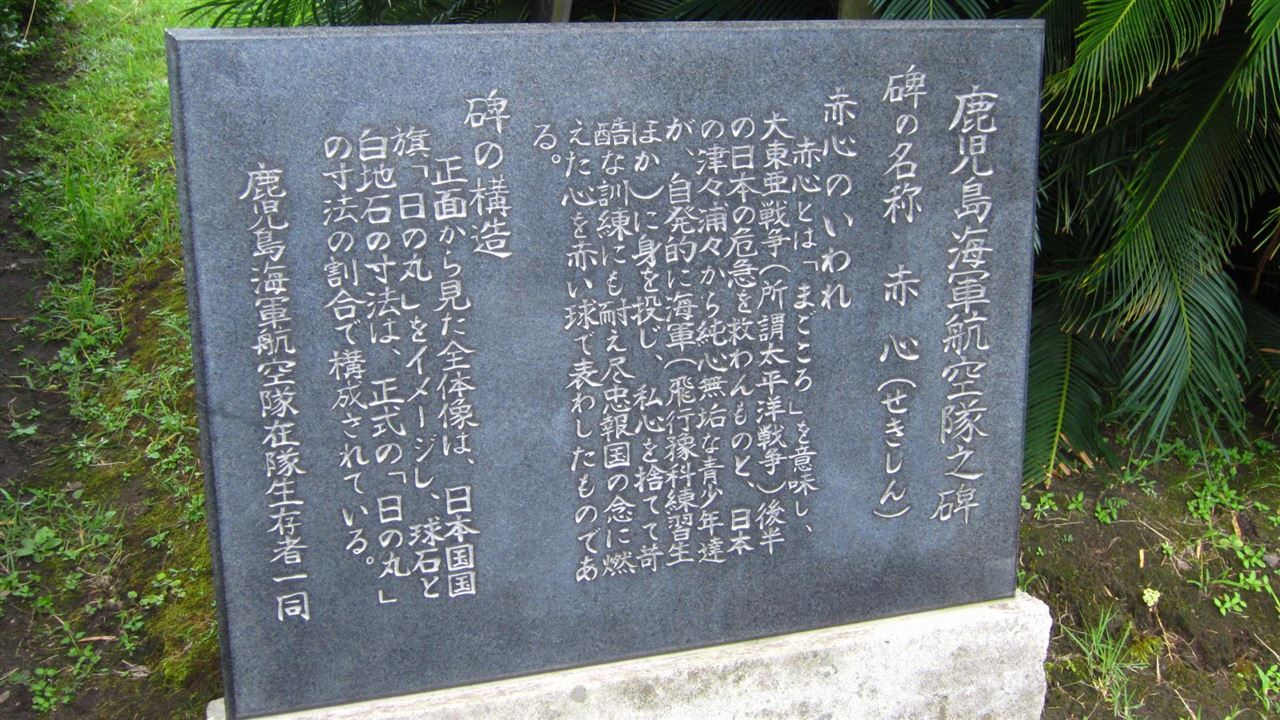 鹿児島海軍航空隊之碑
碑の名称　赤心(せきしん)
赤心のいわれ
赤心とは「まごころ」を意味し、
大東亜戦争(所謂太平洋戦争)後半
の日本の危急を救わんものと、日本
の津々浦々から純心無垢な青少年達
が、自発的に海軍(飛行豫科練習生
ほか)に身を投じ、私心を捨てて苛
酷な訓練にも耐え尽忠報国の念に燃
えた心を赤い球で表わしたものであ
る。
碑の構造
正面から見た全体像は、日本国国
旗「日の丸」をイメージし、球石と
白地石の寸法は、正式の「日の丸」
の寸法の割合で構成されている。
鹿児島海軍航空隊在隊生存者一同